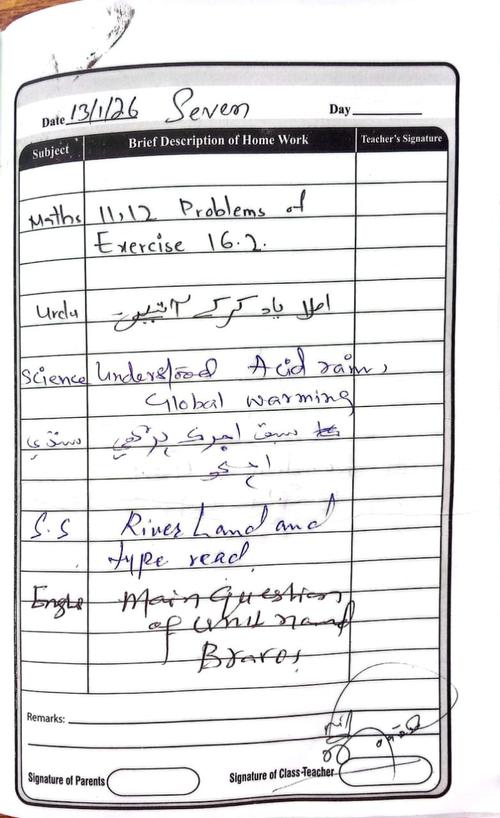 Date 13/1/26 Seven Day
Subject Brief Description of Home Work Teacher's Signature
Maths 11,12 Problems of
Exercise 16.2.
Urdu املا یاد کر کے آئیں۔
Science Understood Acid rain,
Global warming
سبق
اچو
S.S River Land and
type read
Main Question
of unit
Remarks:
Signature of Parents Signature of Class-Teacher